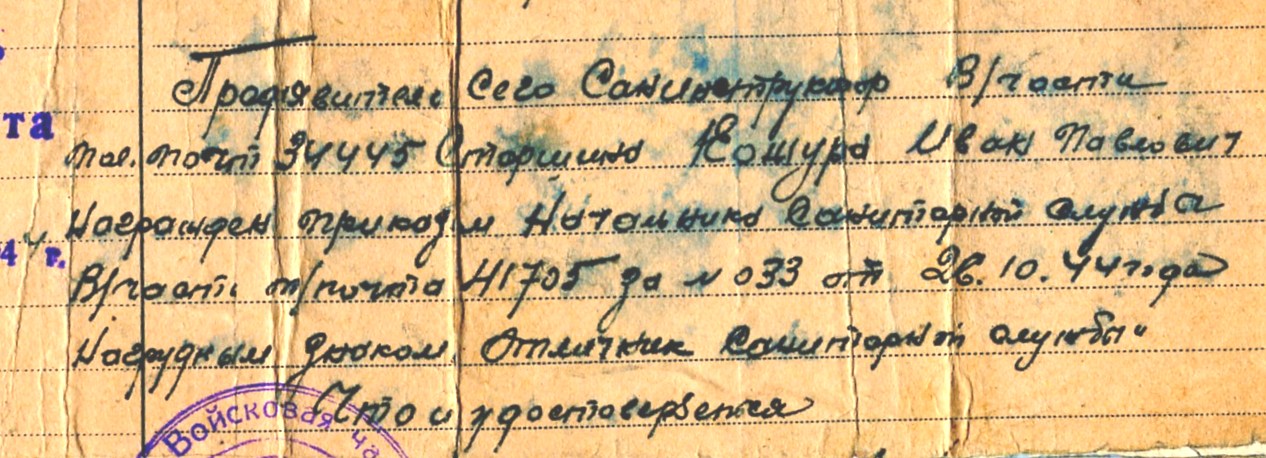 та
4 г.
Предявитель Сего Санинструктор В/части
пол. почт 34445 Старшина Кошура Иван Павлович
Награжден приказом Начальника Санитарной службы
В/части п/почта 41705 за № 033 от 26.10.44 года
Нагрудным знаком „Отличник Санитарной службы"
Что и удостоверяется
Войсковая ча